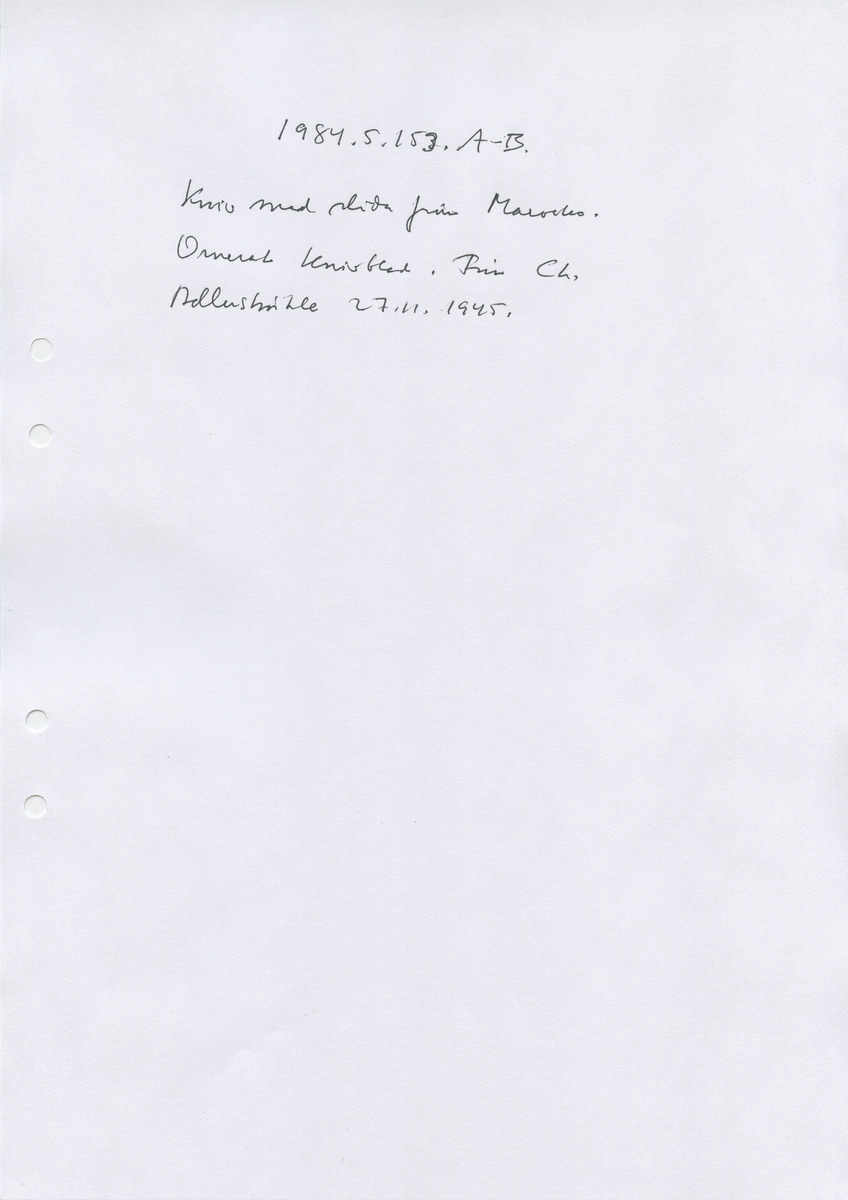 1984.5.153. A-B.
Kniv med slida från Marocko.
Ornerat knivblad. Från Ch.
Adlerstråhle 27.11. 1945.